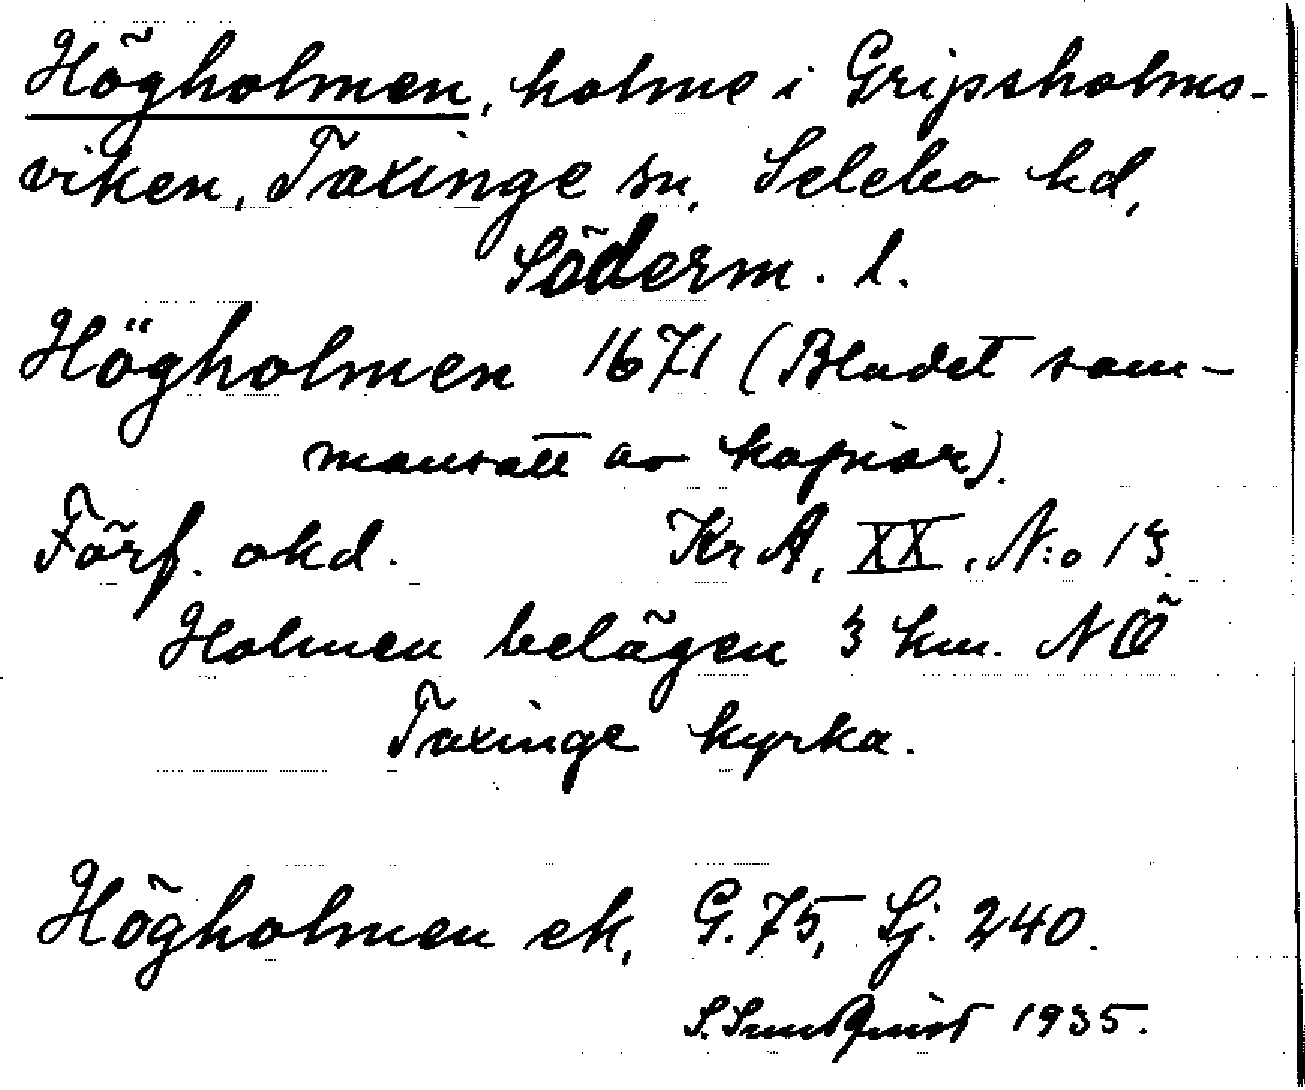 Högholmen, holme i Gripsholms-
viken, Taxinge sn, Selebo hd,
Söderm. l.
Högholmen 1671 (Bladet sam-
mansatt av kopior).
Förf. okd. KrA, XX, N:o 13.
Holmen belägen 3 km. NÖ
Taxinge kyrka.
Högholmen ek, G. 75, Sj. 240.
S. Sundquist 1935.